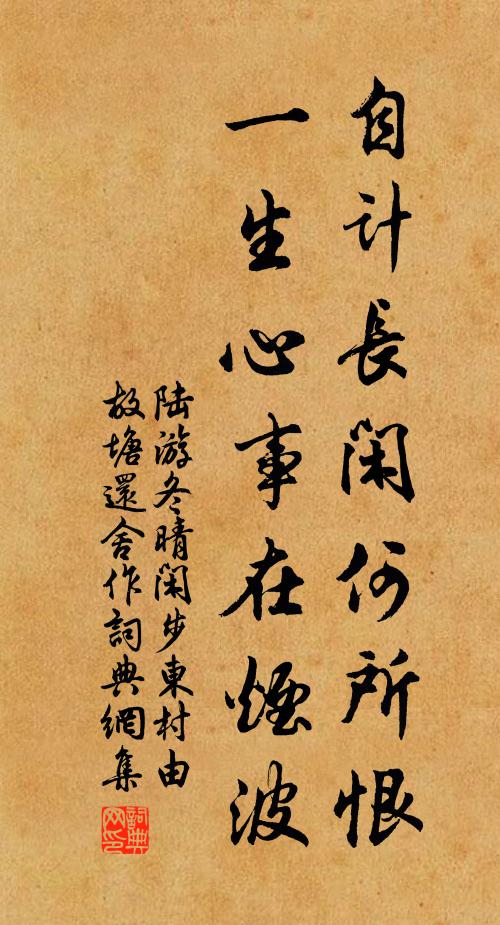 自计長閑何所恨
一生心事在煙波
陆游冬晴閑步東村由
故塘還舍作詞典網集
詞典
网印